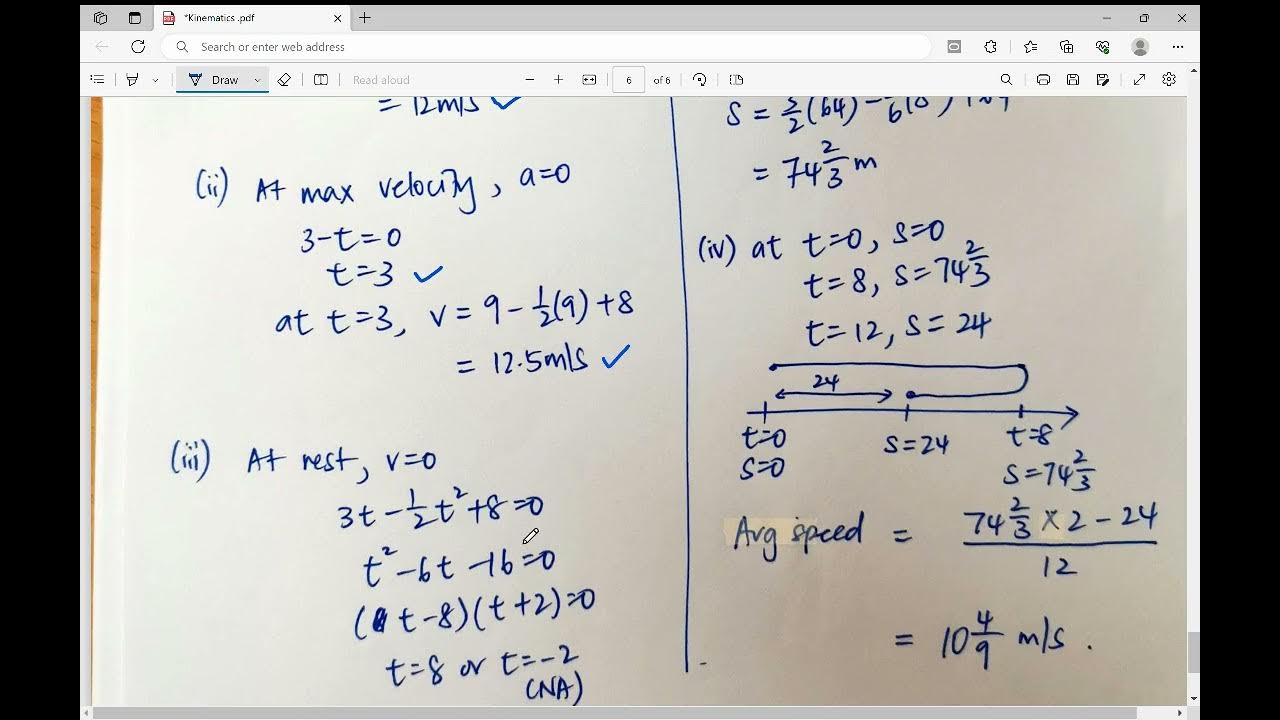 *Kinematics .pdf
Search or enter web address
Draw
Read aloud
6
of 6
= 12m/s ✓
(ii) At max velocity, a=0
3-t=0
t=3 ✓
at t=3, v = 9 - 1/2(9) +8
= 12.5m/s ✓
(iii) At rest, v=0
3t - 1/2 t² +8 =0
t² -6t -16 =0
(t-8)(t+2)=0
t=8 or t=-2
(NA)
s = 5/2(64) -
= 74 2/3 m
(iv) at t=0, s=0
t=8, s=74 2/3
t=12, s= 24
24
t=0
s=0
s=24
t=8
s=74 2/3
Avg speed = (74 2/3 × 2 - 24)/12
= 10 4/9 m/s .